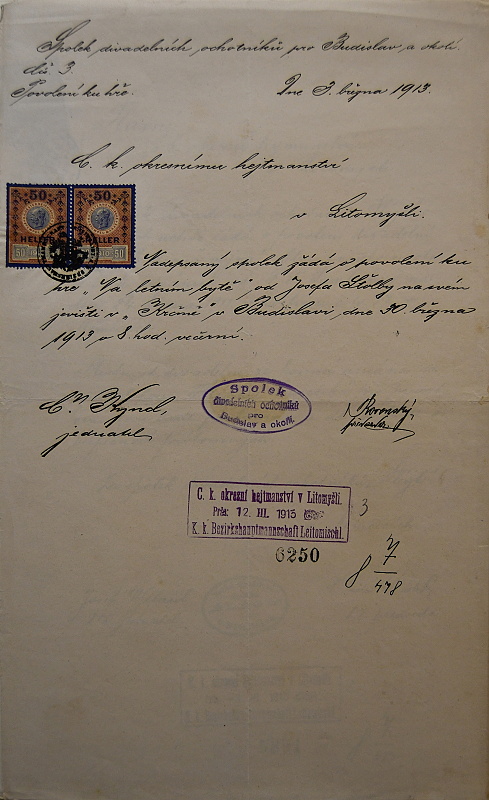 Spolek divadelních ochotníků pro Budislav a okolí
čís. 3.
Povolení ku hře.
Dne 3. března 1913.
C. k. okresnímu hejtmanství
v Litomyšli.
50 50
HELLER HELLER
Nadepsaný spolek žádá o povolení ku
hře „Na letním bytě" od Josefa Štolby na svém
jevišti v „Krčmě" v Budislavi dne 30. března
1913 o 8. hod. večerní.
Spolek
divadelních ochotníků
pro
Budislav a okolí.
jednatel
C. k. okresní hejtmanství v Litomyšli.
Präs: 12. III. 1913
K. k. Bezirkshauptmannschaft Leitomischl.
3
6250
8 7
478